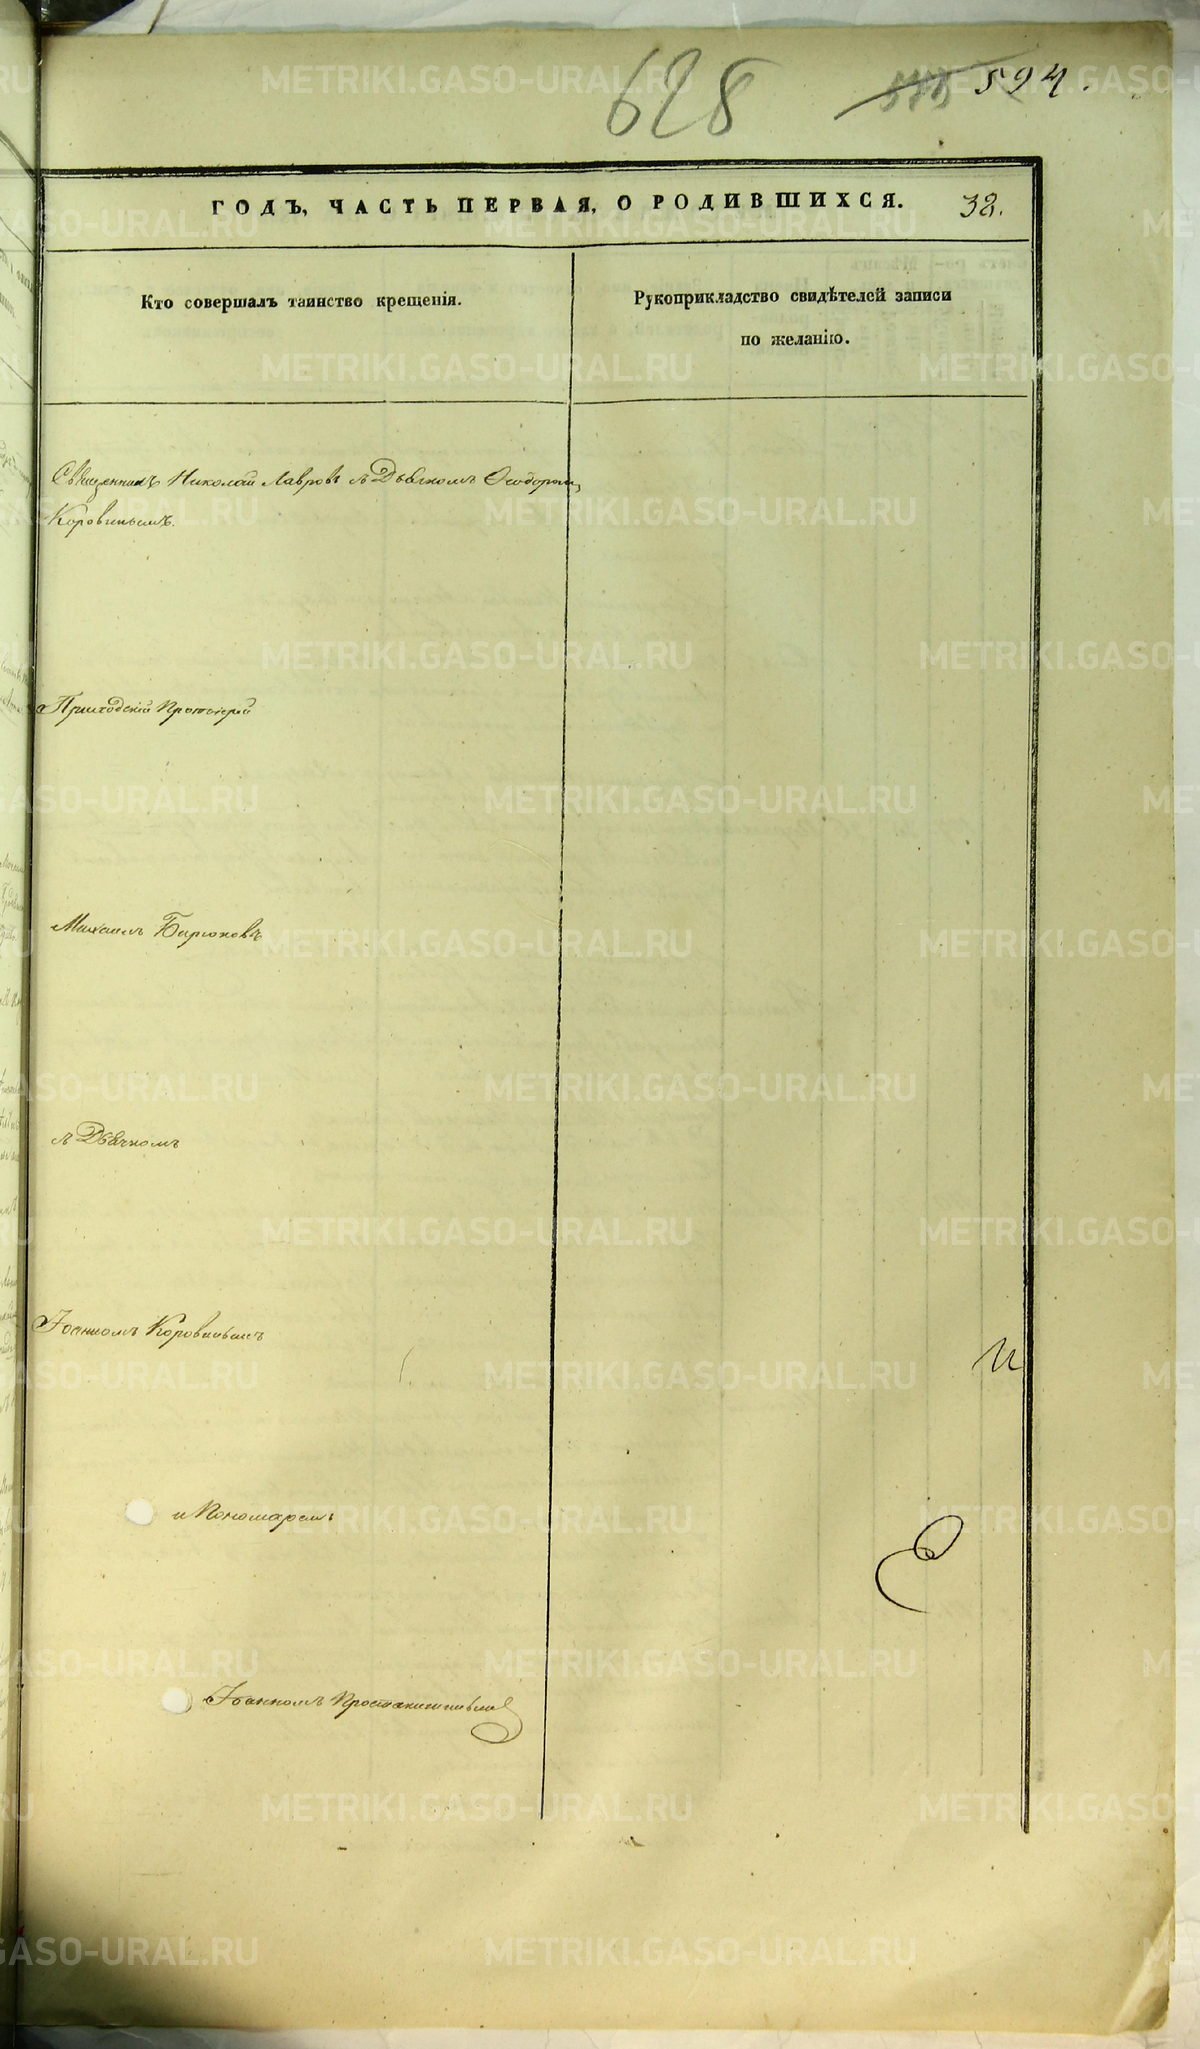 628
594.
ГОДЪ, ЧАСТЬ ПЕРВАЯ, О РОДИВШИХСЯ. 38.
Кто совершалъ таинство крещенія.
Рукоприкладство свидѣтелей записи
по желанію.
Священникъ Николай Лавровъ съ Дьячкомъ Ѳеодоромъ
Коровинымъ.
Приходскій Протоіерей
Михаилъ Бирюковъ
съ Дьячкомъ
Іоанномъ Коровинымъ
и Пономаремъ
Іоанномъ
METRIKI.GASO-URAL.RU